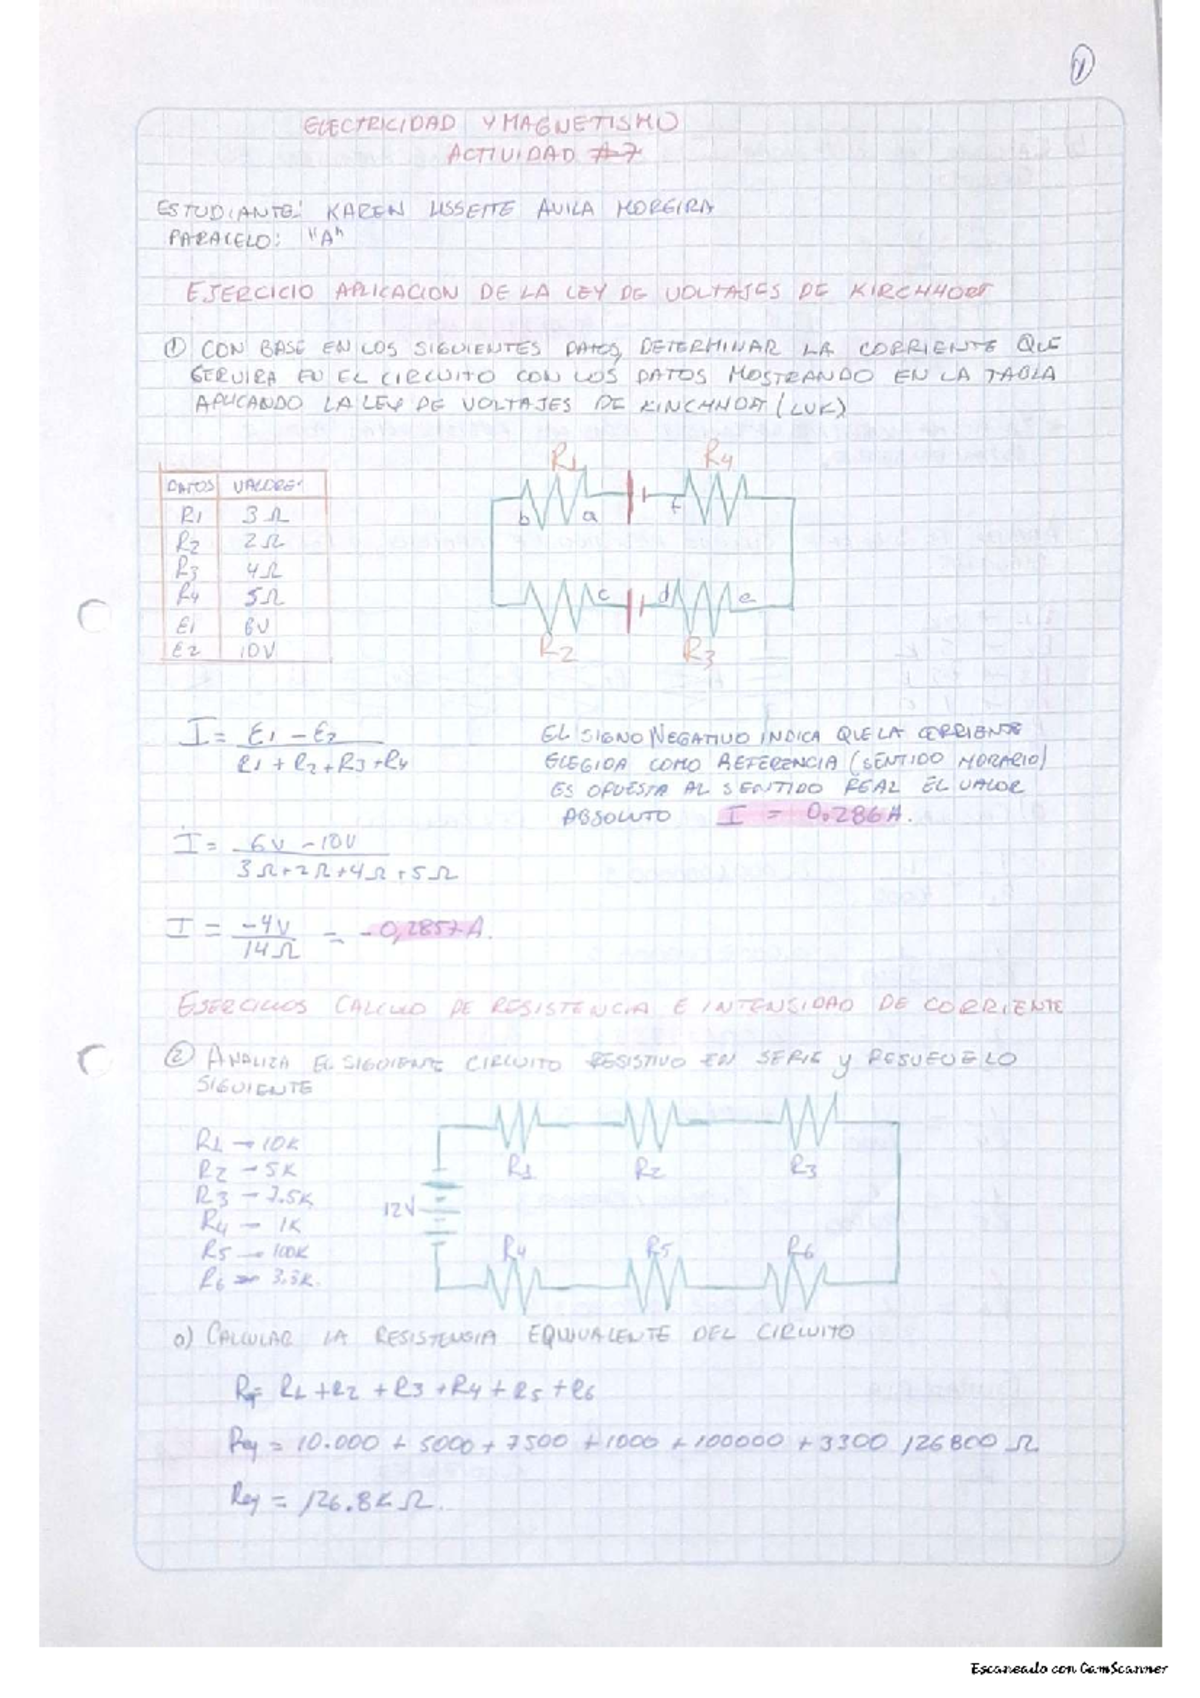 1
ELECTRICIDAD Y MAGNETISMO
ACTIVIDAD #7
ESTUDIANTE: KAREN LISSETTE AVILA MOREIRA
PARALELO: "A"
EJERCICIO APLICACION DE LA LEY DE VOLTAJES DE KIRCHHOFF
① CON BASE EN LOS SIGUIENTES DATOS, DETERMINAR LA CORRIENTE QUE
SERVIRA EN EL CIRCUITO CON LOS DATOS MOSTRANDO EN LA TABLA
APLICANDO LA LEY DE VOLTAJES DE KINCHHOFF (LVK)
DATOS VALORES
R1 3Ω
R2 2Ω
R3 4Ω
R4 5Ω
E1 6V
E2 10V
R1 R4
b a f
c d e
R2 R3
I = E1 - E2
R1 + R2 + R3 + R4
I = 6V - 10V
3Ω+2Ω+4Ω+5Ω
I = -4V = -0,2857A.
14Ω
EL SIGNO NEGATIVO INDICA QUE LA CORRIENTE
ELEGIDA COMO REFERENCIA (SENTIDO HORARIO)
ES OPUESTA AL SENTIDO REAL EL VALOR
ABSOLUTO I = 0.286A.
EJERCICIOS CALCULO DE RESISTENCIA E INTENSIDAD DE CORRIENTE
② ANALIZA EL SIGUIENTE CIRCUITO RESISTIVO EN SERIE y RESUELVE LO
SIGUIENTE
R1 → 10K
R2 - 5K
R3 - 7.5K
R4 - 1K
R5 → 100K
R6 → 3.3K.
R1 R2 R3
12V
R4 R5 R6
a) CALCULAR LA RESISTENSIA EQUIVALENTE DEL CIRCUITO
RT= R1 + R2 + R3 + R4 + R5 + R6
Req = 10.000 + 5000 + 7500 + 1000 + 100000 + 3300 126800 Ω
Req = 126.8K Ω.
Escaneado con CamScanner